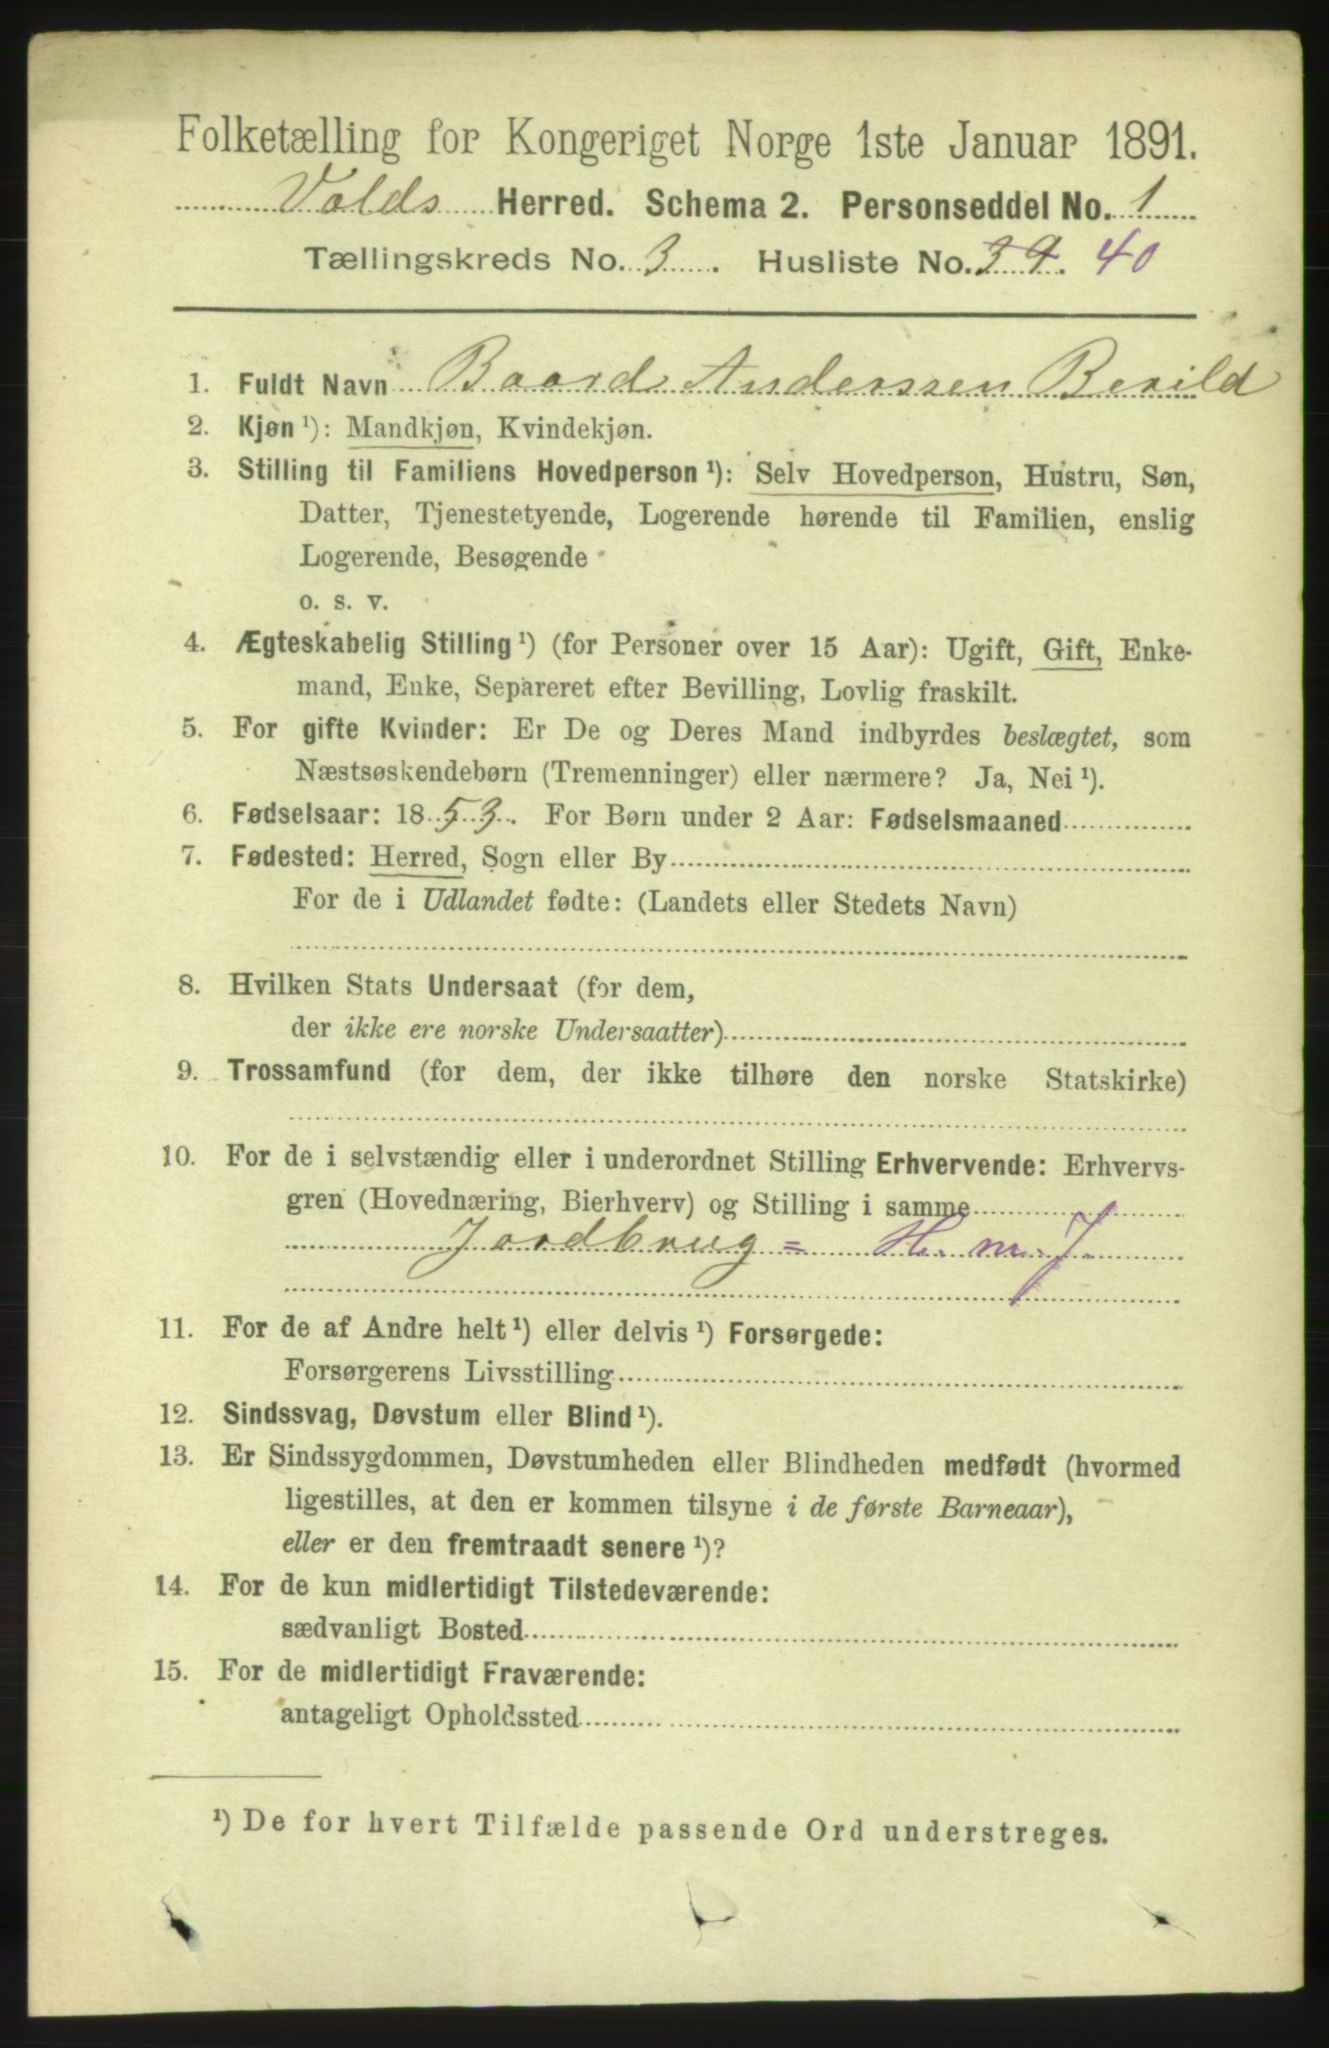 Folketælling for Kongeriget Norge 1ste Januar 1891.
Volds Herred. Schema 2. Personseddel No. 1
Tællingskreds No. 3. Husliste No. 39. 40
1. Fuldt Navn Baard Anderssen Berild
2. Kjøn ¹): Mandkjøn, Kvindekjøn.
3. Stilling til Familiens Hovedperson ¹): Selv Hovedperson, Hustru, Søn,
Datter, Tjenestetyende, Logerende hørende til Familien, enslig
Logerende, Besøgende
o. s. v.
4. Ægteskabelig Stilling ¹) (for Personer over 15 Aar): Ugift, Gift, Enke-
mand, Enke, Separeret efter Bevilling, Lovlig fraskilt.
5. For gifte Kvinder: Er De og Deres Mand indbyrdes beslægtet, som
Næstsøskendebørn (Tremenninger) eller nærmere? Ja, Nei ¹).
6. Fødselsaar: 1853. For Børn under 2 Aar: Fødselsmaaned
7. Fødested: Herred, Sogn eller By
For de i Udlandet fødte: (Landets eller Stedets Navn)
8. Hvilken Stats Undersaat (for dem,
der ikke ere norske Undersaatter)
9. Trossamfund (for dem, der ikke tilhøre den norske Statskirke)
10. For de i selvstændig eller i underordnet Stilling Erhvervende: Erhvervs-
gren (Hovednæring, Bierhverv) og Stilling i samme
Jordbrug = H. m. J.
11. For de af Andre helt ¹) eller delvis ¹) Forsørgede:
Forsørgerens Livsstilling
12. Sindssvag, Døvstum eller Blind ¹).
13. Er Sindssygdommen, Døvstumheden eller Blindheden medfødt (hvormed
ligestilles, at den er kommen tilsyne i de første Barneaar),
eller er den fremtraadt senere ¹)?
14. For de kun midlertidigt Tilstedeværende:
sædvanligt Bosted
15. For de midlertidigt Fraværende:
antageligt Opholdssted
¹) De for hvert Tilfælde passende Ord understreges.